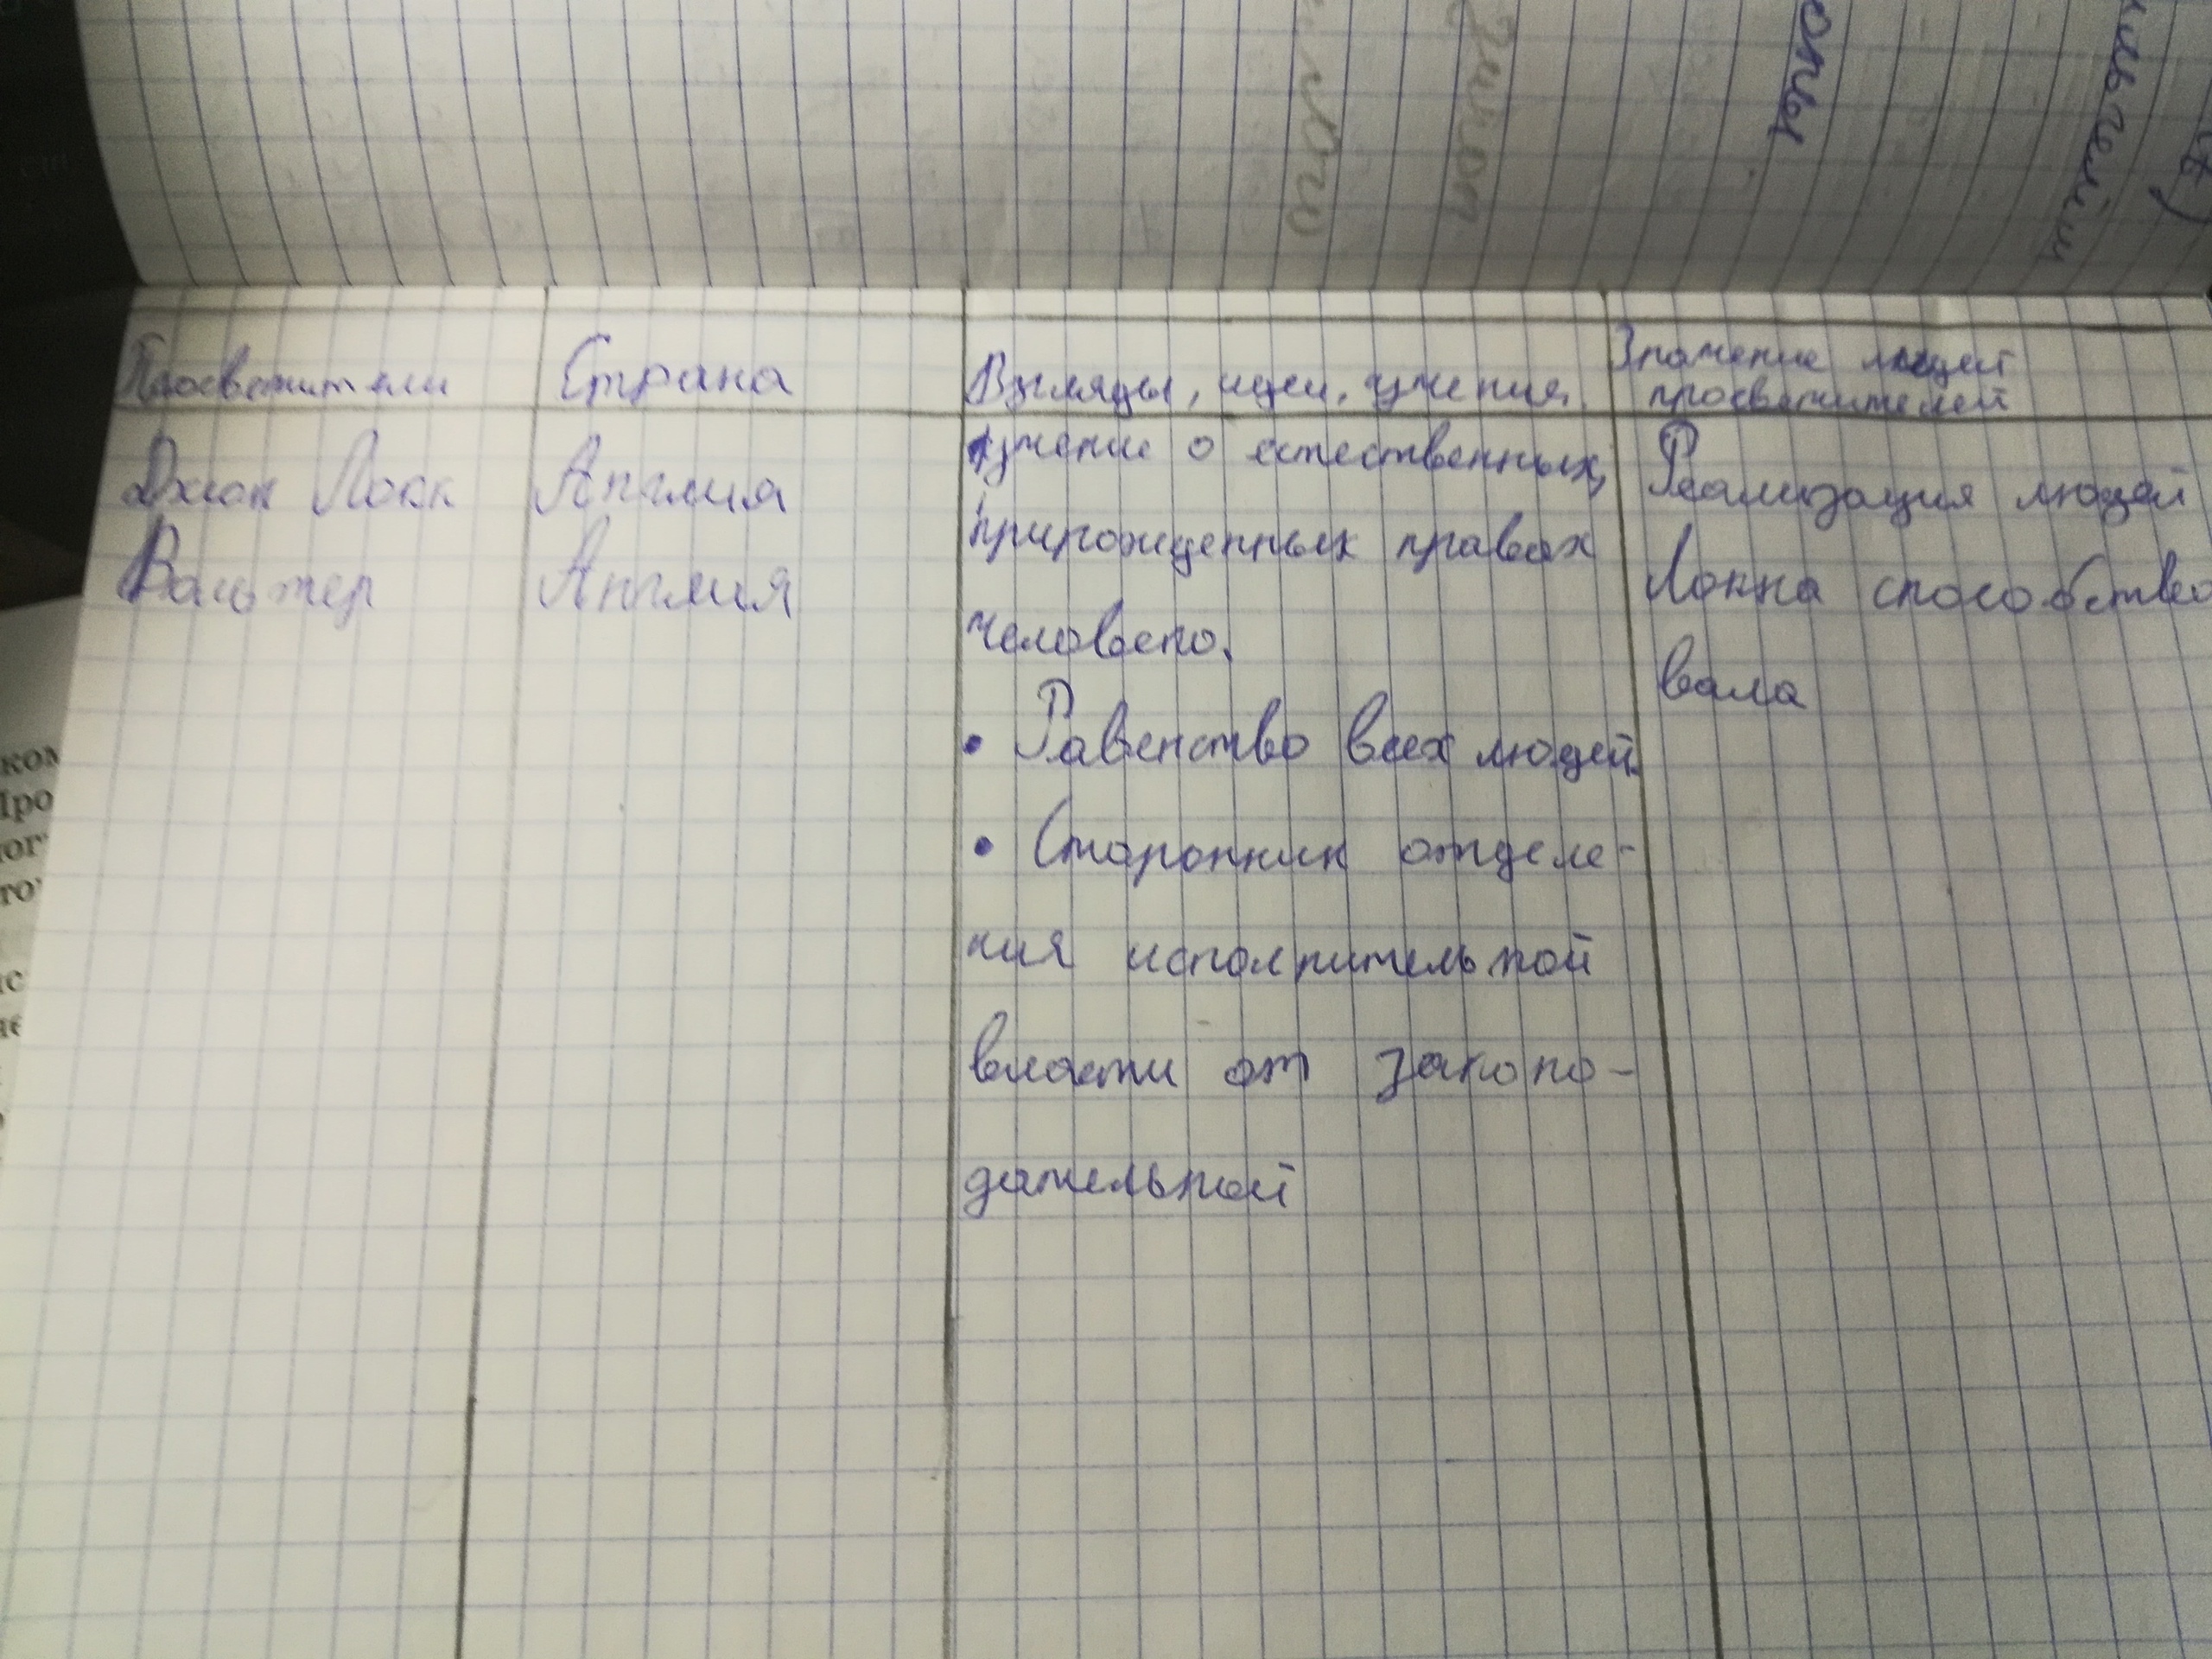 опы
Просветители Страна Взгляды, идеи, учения. Значение людей
просветителей
Джон Локк Англия учение о естественных,
прирожденных правах
человека.
• Равенство всех людей.
• Сторонник отделе-
ния исполнительной
власти от законо-
дательной
Реализация людей
Локка способство
вала
Вольтер Англия
ком
Про
лог
то